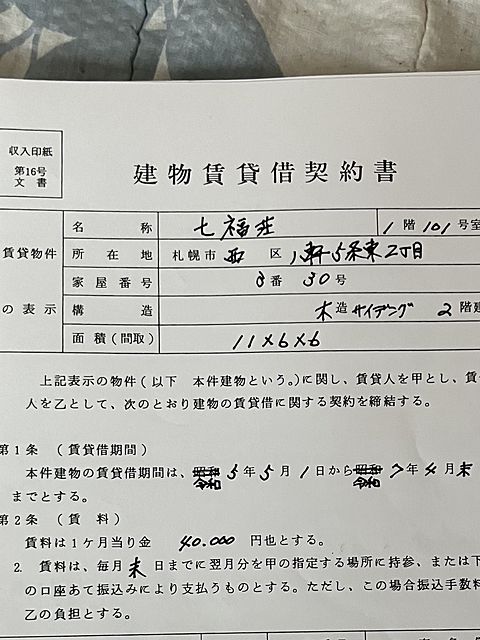 収入印紙
第16号
文書
建物賃貸借契約書
賃貸物件
の表示
名称 七福荘 1階101号室
所在地 札幌市西区 八軒5条東2丁目
家屋番号 8番30号
構造 木造サイディング 2階建
面積(間取) 11×6×6
上記表示の物件(以下 本件建物という。)に関し、賃貸人を甲とし、賃
人を乙として、次のとおり建物の賃貸借に関する契約を締結する。
第1条 (賃貸借期間)
本件建物の賃貸借期間は、令和5年5月1日から令和7年4月末
までとする。
第2条 (賃料)
賃料は1ケ月当り金 40.000 円也とする。
2. 賃料は、毎月末日までに翌月分を甲の指定する場所に持参、または下
の口座あて振込みにより支払うものとする。ただし、この場合振込手数料
乙の負担とする。